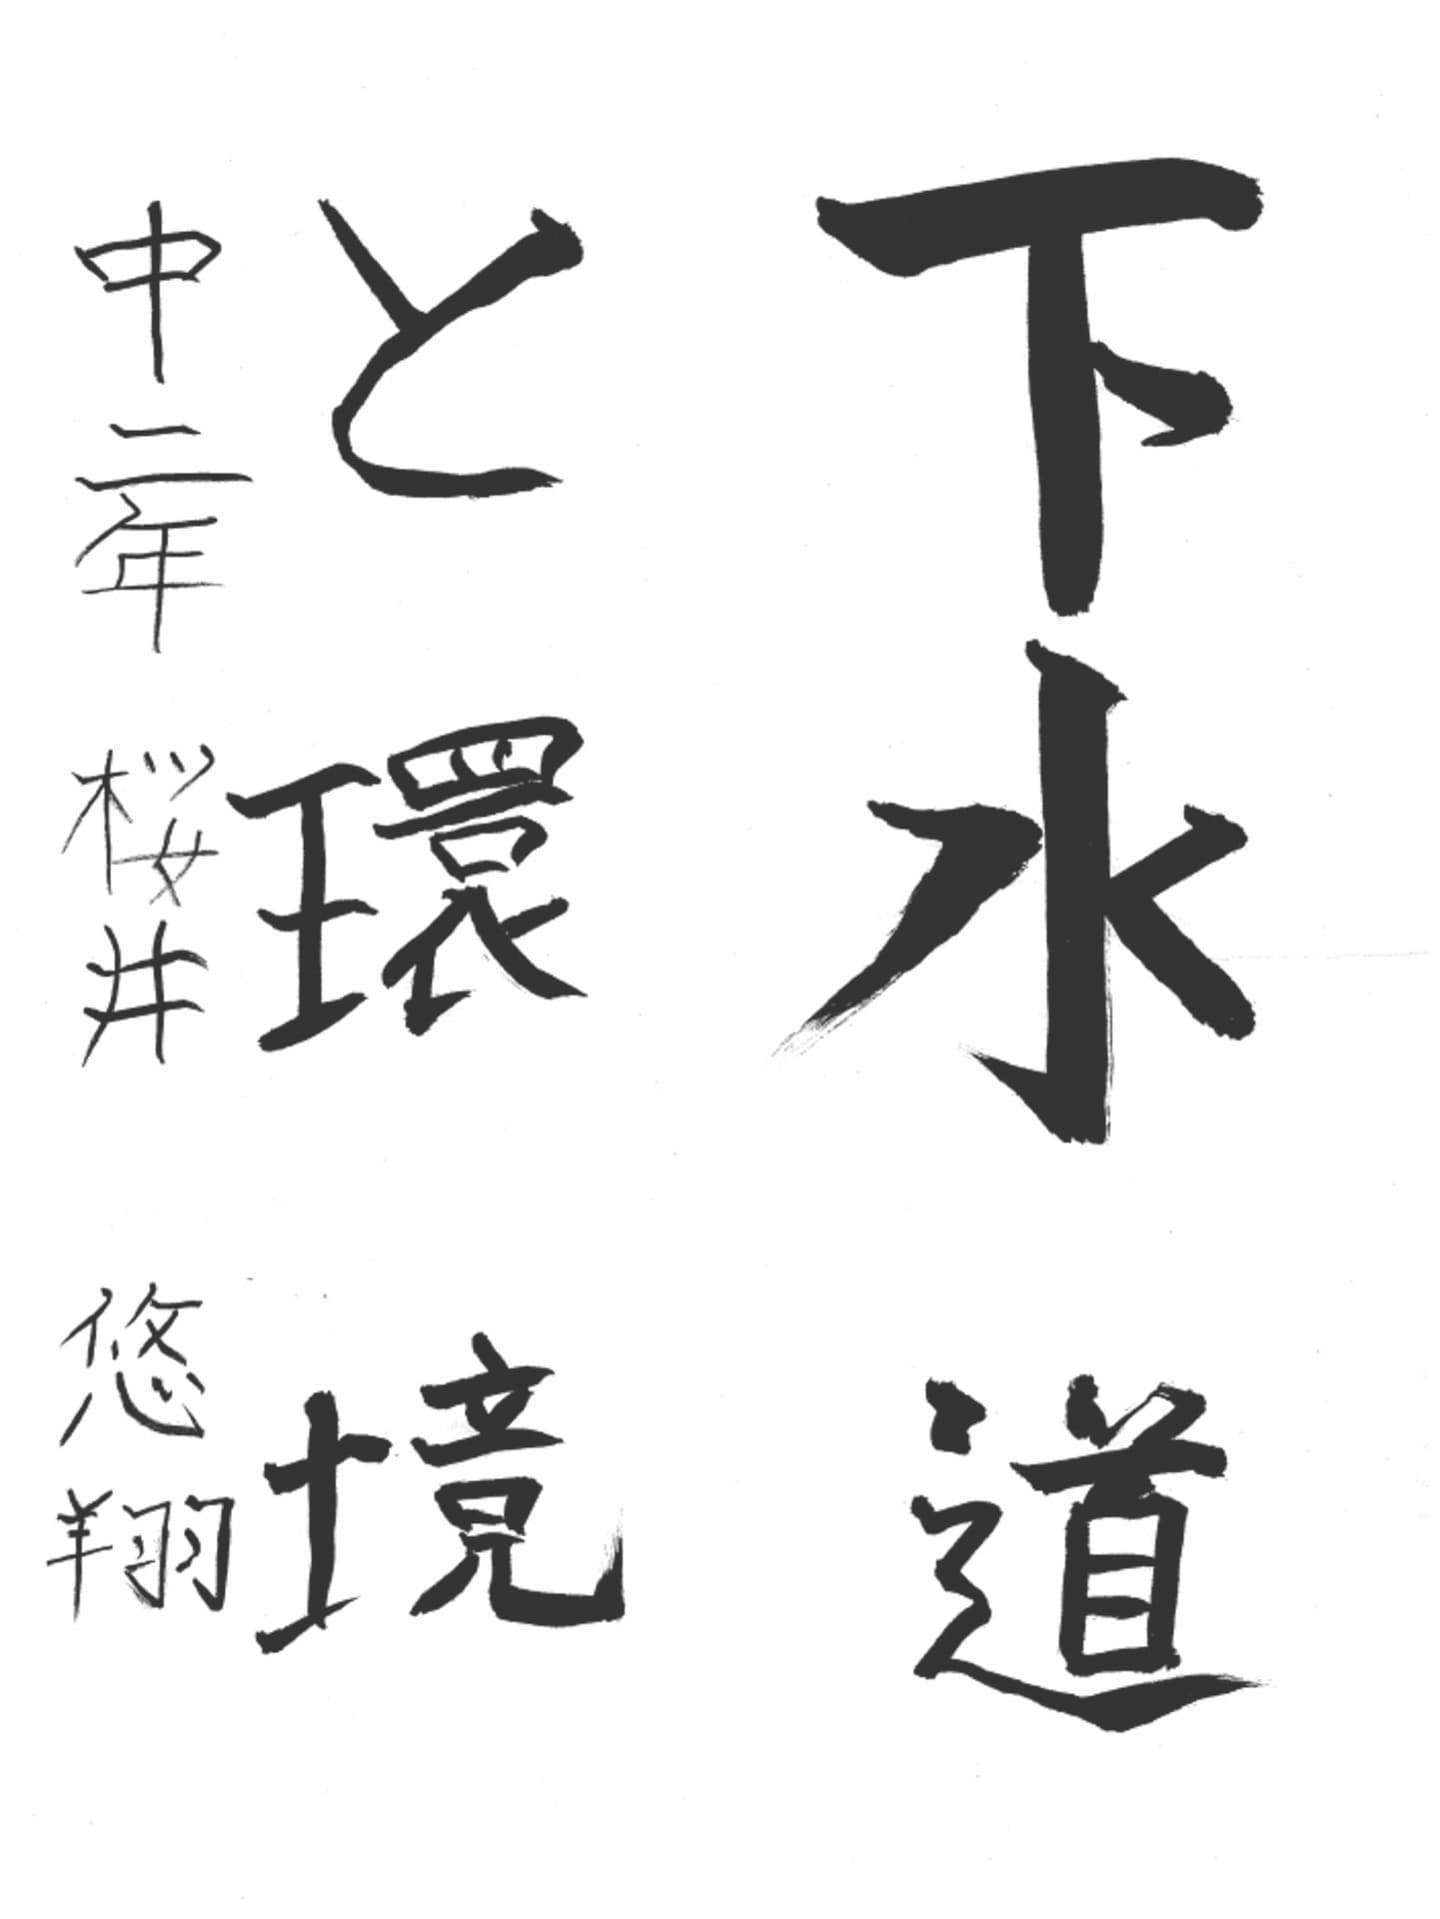 下水道
と環境
中二年 桜井 悠翔